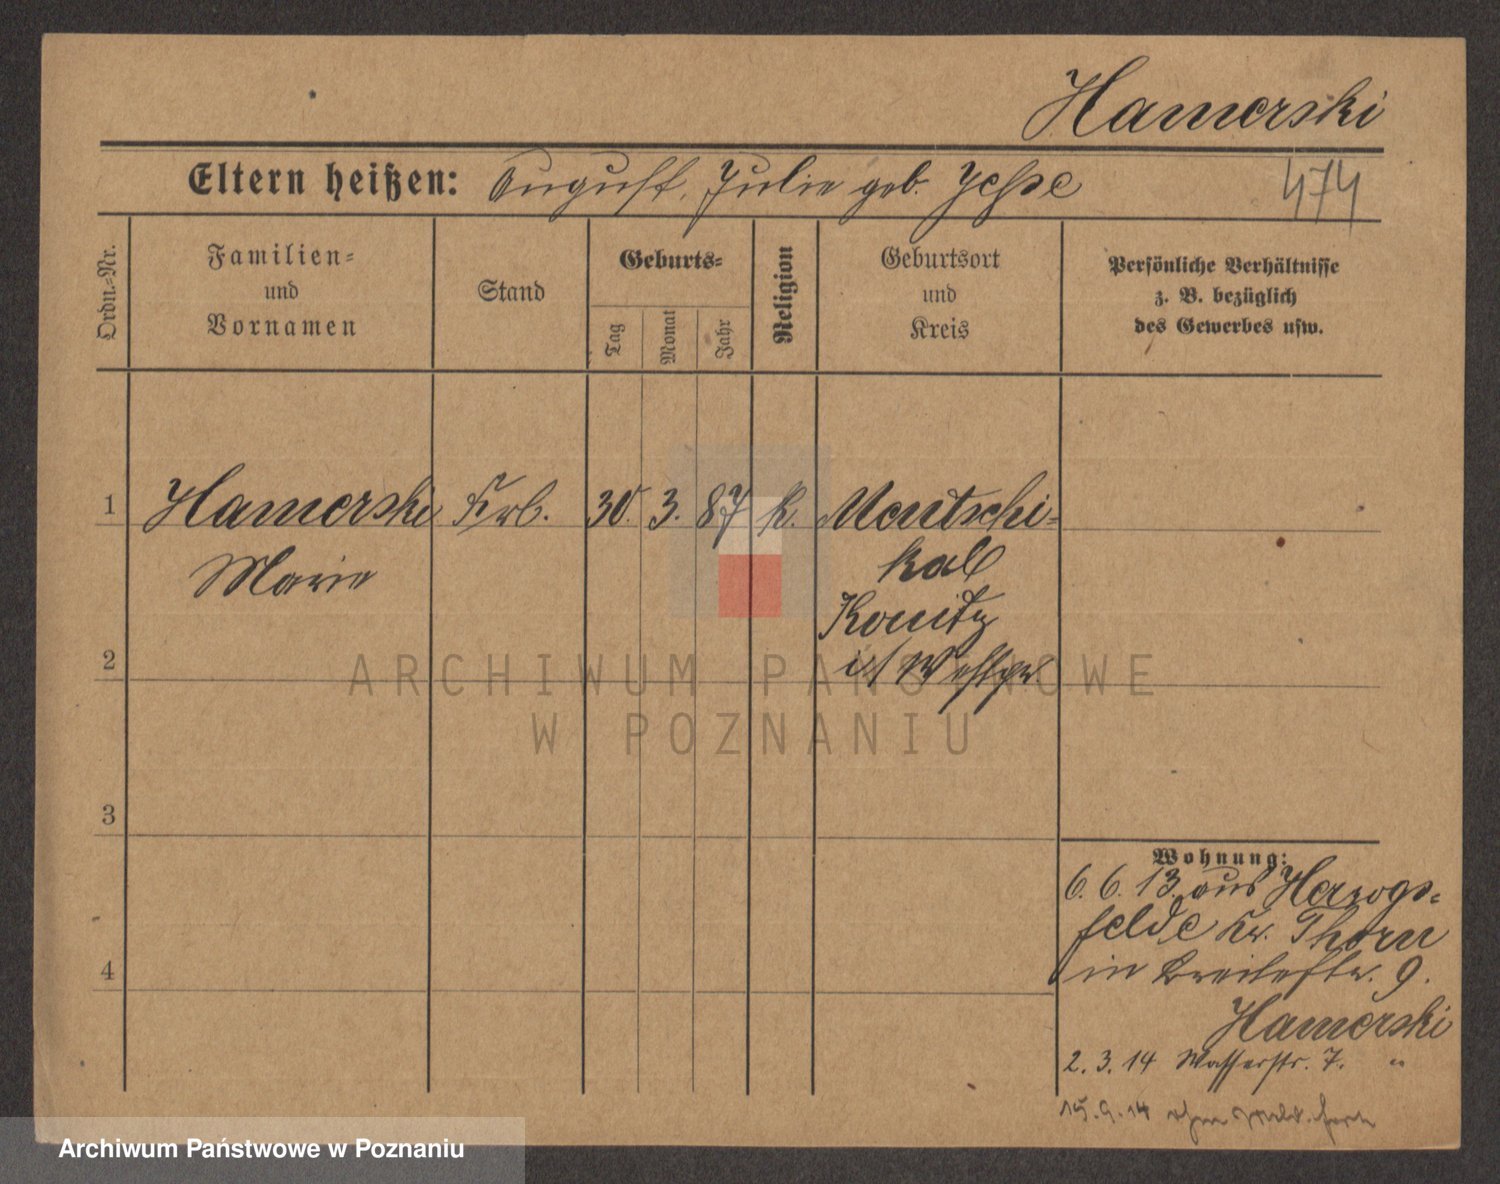 Hamerski
Eltern heißen: August, Julie geb. Jesse
474
Ordn.-Nr.
Familien-
und
Vornamen
Stand
Geburts-
Tag
Monat
Jahr
Religion
Geburtsort
und
Kreis
Persönliche Verhältnisse
z. B. bezüglich
des Gewerbes usw.
1 Hamerski 30. 3. 87 k. Mentschi-
Marie
kal
Konitz
i/ Westpr.
2
3
4
Wohnung:
6. 6. 13. aus Herzogs-
felde Kr. Thorn
in Breitestr. 9.
Hamerski
2. 3. 14 Wasserstr. 7. "
15. 9. 14 ohne Meld. fort
ARCHIWUM PAŃSTWOWE
W POZNANIU
Archiwum Państwowe w Poznaniu